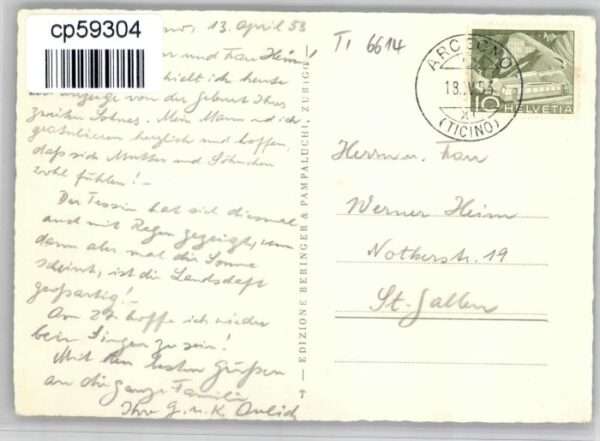 cp59304
13. April 53
und Frau Heim!
ich heute
Anzeige von der Geburt Ihres
zweiten Sohnes. Mein Mann und ich
gratulieren herzlich und hoffen,
daß sich Mutter und Söhnchen
wohl fühlen! -
Der Tessin hat sich diesmal
auch mit Regen gezeigt, wenn
dann aber mal die Sonne
scheint, ist die Landschaft
großartig! -
Am 20. hoffe ich wieder
beim Singen zu sein!
Mit den besten Grüßen
an die ganze Familie
Ihre G. u. K.
— EDIZIONE BERINGER & PAMPALUCHI, ZURIGO
TI 6614
ARCEGNO
13.IV.53
XI
(TICINO)
10
HELVETIA
Herrn u. Frau
Werner Heim
Notkerstr. 19
St. Gallen